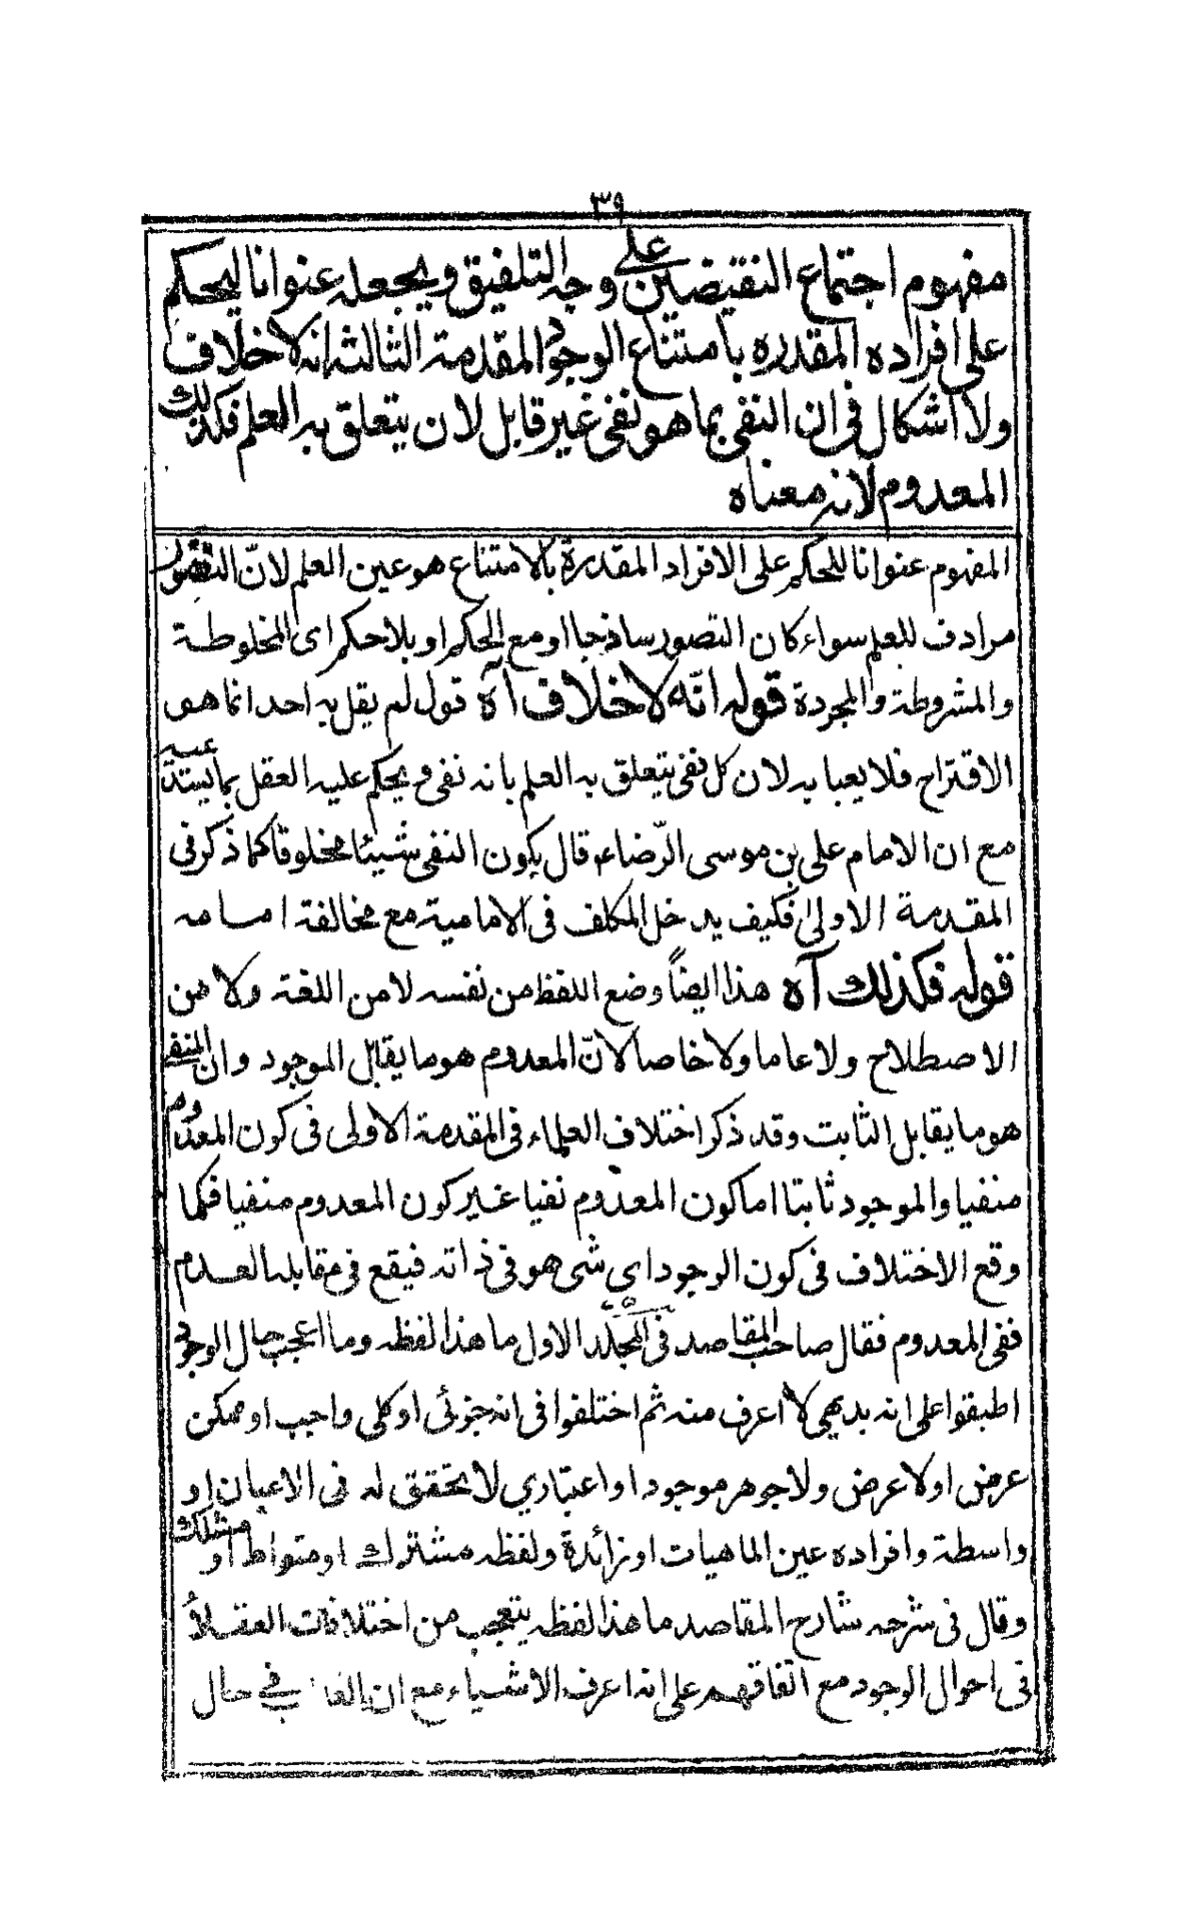 ٣٩
مفهوم اجتماع النقيضين على وجه التلفيق ويجعله عنوانا ليحكم
على افراده المقدره بامتناع الوجود المقدمة الثالثه انه لا خلاف
ولا اشكال فى ان النفى بما هو نفى غير قابل لان يتعلق به العلم فكذلك
المعدوم لانه معناه
المفهوم عنوانا للحكم على الافراد المقدرة بالامتناع هو عين العلم لانّ التصور
مرادف للعلم سواء كان التصور ساذجا او مع الحكم او بلا حكم اى المخلوطة
والمشروطة والمجردة قوله انّه لا خلاف آه قول لم يقل به احد انما هو
الاقتراح فلا يعبا به لان كل نفى يتعلق به العلم بانه نفى ويحكم عليه العقل بما يستدعيه
مع ان الامام على بن موسى الرّضاء قال يكون النفى شيئا مخلوقا كما ذكر فى
المقدمة الاولى فكيف يدخل المكلف فى الامامية مع مخالفة امامه
قوله فكذلك آه هذا ايضاً وضع اللفظ من نفسه لا من اللغة ولا من
الاصطلاح ولا عاما ولا خاصا لانّ المعدوم هو ما يقابل الموجود وان المنفى
هو ما يقابل الثابت وقد ذكر اختلاف العلماء فى المقدمة الاولى فى كون المعدوم
منفيا والموجود ثابتا اما كون المعدوم نفيا غير كون المعدوم منفيا فكما
وقع الاختلاف فى كون الوجود اى شى هو فى ذاته فيقع فى مقابله العدم
ففى المعدوم فقال صاحب المقاصد فى المجلد الاول ما هذا لفظه وما اعجب حال الوجود
اطبقوا على انه بديهى لا اعرف منه ثم اختلفوا فى انه جزئى او كلى واجب او ممكن
عرض او لا عرض ولا جوهر موجود او اعتبارى لا تحقق له فى الاعيان او
واسطة وافراده عين الماهيات او زائدة ولفظه مشترك او متواط او مشكك
وقال فى شرحه شارح المقاصد ما هذا لفظه يتعجب من اختلافات العقلاء
فى احوال الوجود مع اتفاقهم على انه اعرف الاشياء مع ان الغالب فى حال